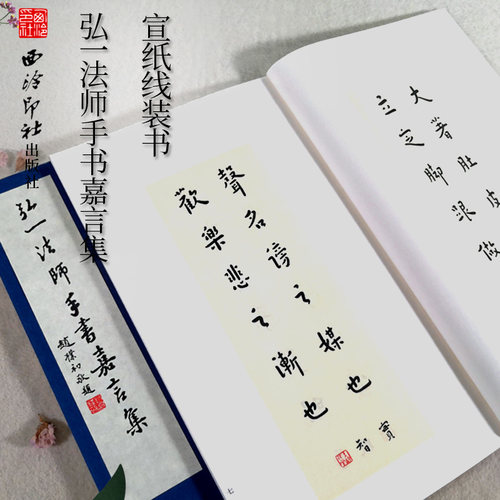 宣纸线装书
弘一法师手书嘉言集
西泠印社出版社
西泠印社
弘一法師手書嘉言集
趙樸初敬題
大著肚皮
立定脚跟做
聲名謗之媒也
歡樂悲之漸也
七